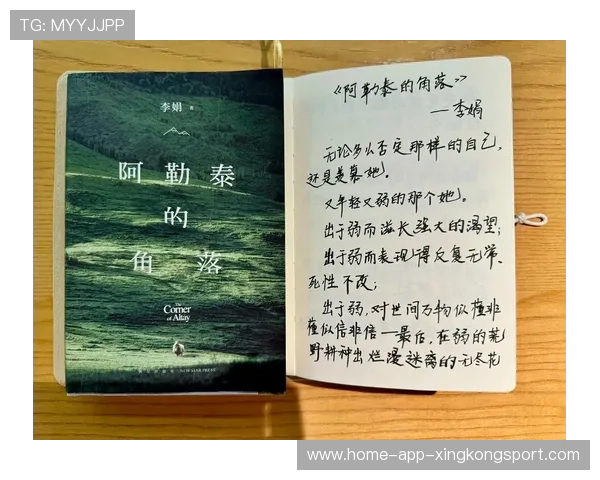 TG: MYYJJPP
李娟 著
阿勒泰
的
角落
The
Corner
of Altay
《阿勒泰的角落》
——李娟
无论多么否定那样的自己,
还是羡慕她。
又年轻又弱的那个她。
出于弱而滋长强大的渴望;
出于弱而表现得反复无常、
死性不改;
出于弱,对世间万物似懂非
懂似信非信——最后,在弱的荒
野耕种出烂漫迷离的无尽花
www.home-app-xingkongsport.com